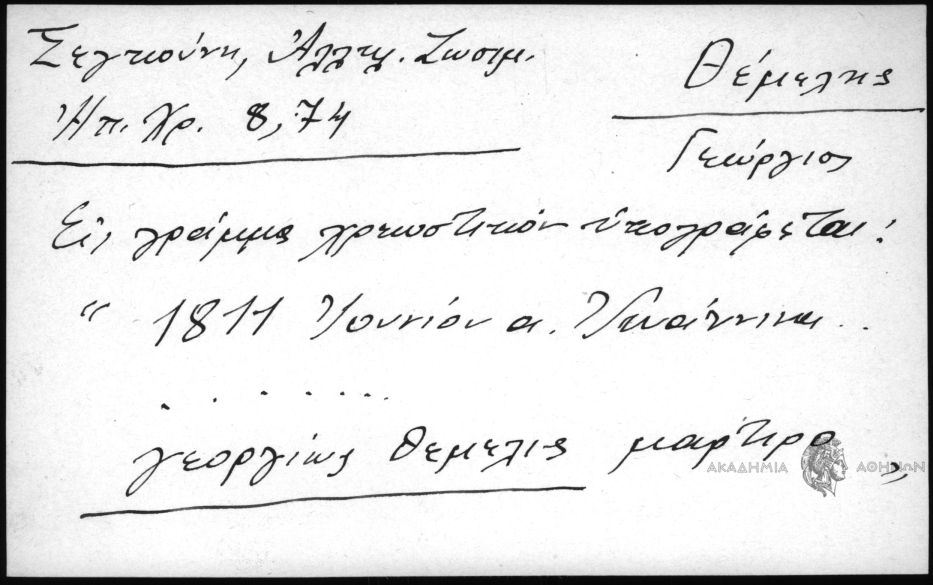 Σεγκούνη, Ἀλληλ. Ζωσιμ.
Ἠπ. Χρ. 8, 74
Θέμελης
Γεώργιος
Εἰς γράμμα χρεωστικόν ὑπογράφεται:
“ 1811 Ἰουνίου α. Ἰωάννινα ..
. . . . . . .
γεοργίως θεμελις μαρτιρο „
ΑΚΑΔΗΜΙΑ ΑΘΗΝΩΝ